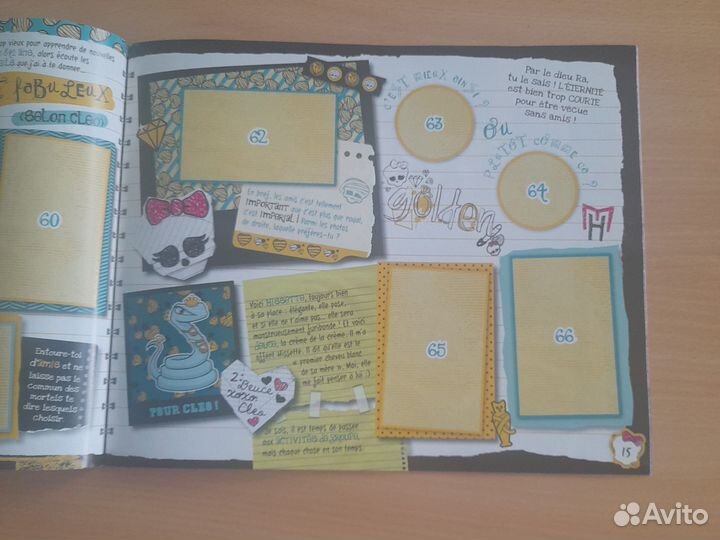 op vieux pour apprendre de nouvelles
alors écoute les
que j'ai à te donner...
T FABULEUX
(selon Cleo)
60
Entoure-toi
d'amis et ne
laisse pas le
commun des
mortels te
dire lesquels
choisir.
62
En bref, les amis c'est tellement
IMPORTANT que c'est plus que royal,
c'est IMPÉRIAL ! Parmi les photos
de droite, laquelle préfères-tu ?
C'EST MIEUX AINSI ?
63
OU
PLUTÔT COMME ÇA ?
64
Par le dieu Ra,
tu le sais ! L'ÉTERNITÉ
est bien trop COURTE
pour être vécue
sans amis !
golden
POUR CLEO !
2: Deuce
xoxo
Cleo
Voici HISSETTE, toujours bien
à sa place : élégante, elle pose,
et si elle ne t'aime pas... elle sera
monstrueusement furibonde ! Et voici
DEUCE, la crème de la crème. Il m'a
offert Hissette. Il dit qu'elle est le
« premier cheveu blanc
de sa mère ». Moi, elle
me fait penser à lui :)
Je sais, il est temps de passer
aux ACTIVITÉS DE GROUPE,
mais chaque chose en son temps.
65
66
15
Avito